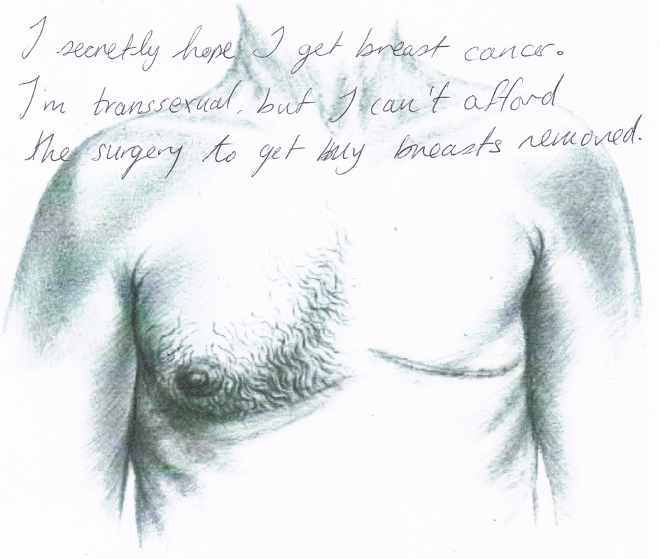 I secretly hope I get breast cancer.
I'm transsexual, but I can't afford
the surgery to get my breasts removed.